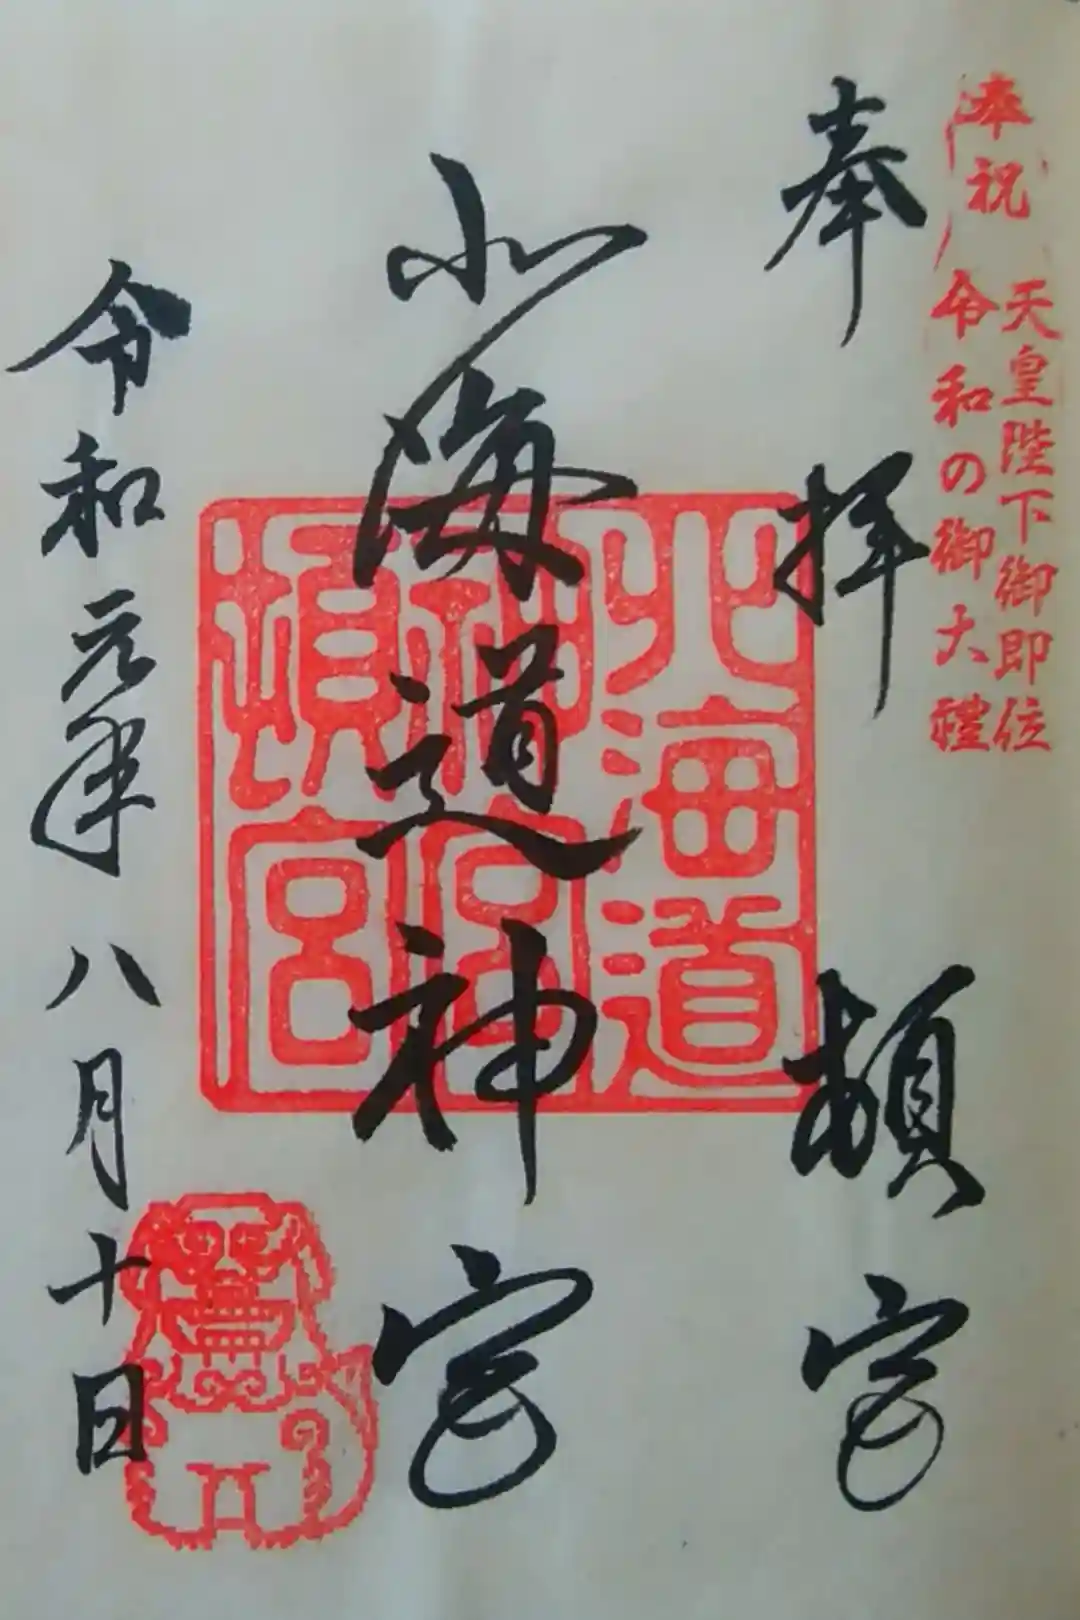 奉祝
天皇陛下御即位
令和の御大禮
奉拝 頓宮
北海道神宮
北海道
神宮
頓宮
令和元年八月十日